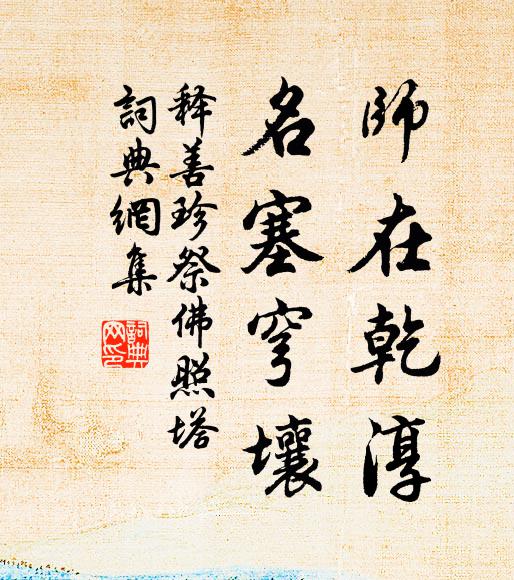 師在乾淳
名塞穹壤
释善珍祭佛照塔
詞典網集
詞典网印